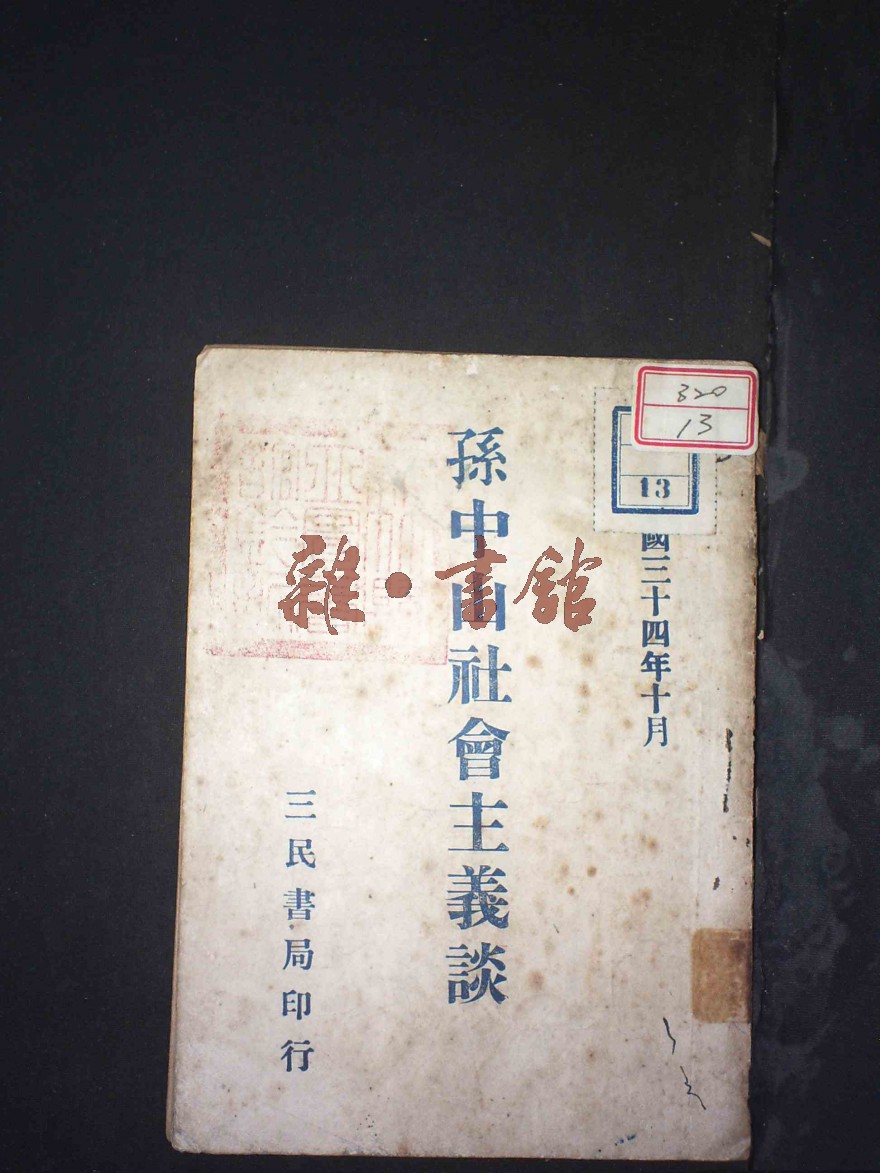 320
13
13
國三十四年十月
孫中山社會主義談
三民書局印行
雜·書館